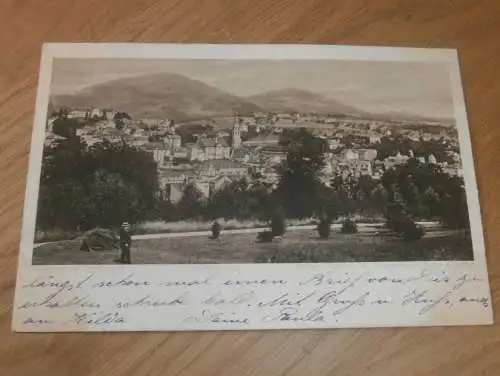 längst schon mal einen Brief von dir zu
erhalten schreib bald. Mit Gruß u Kuß, auch
an Hilda Deine Paula.